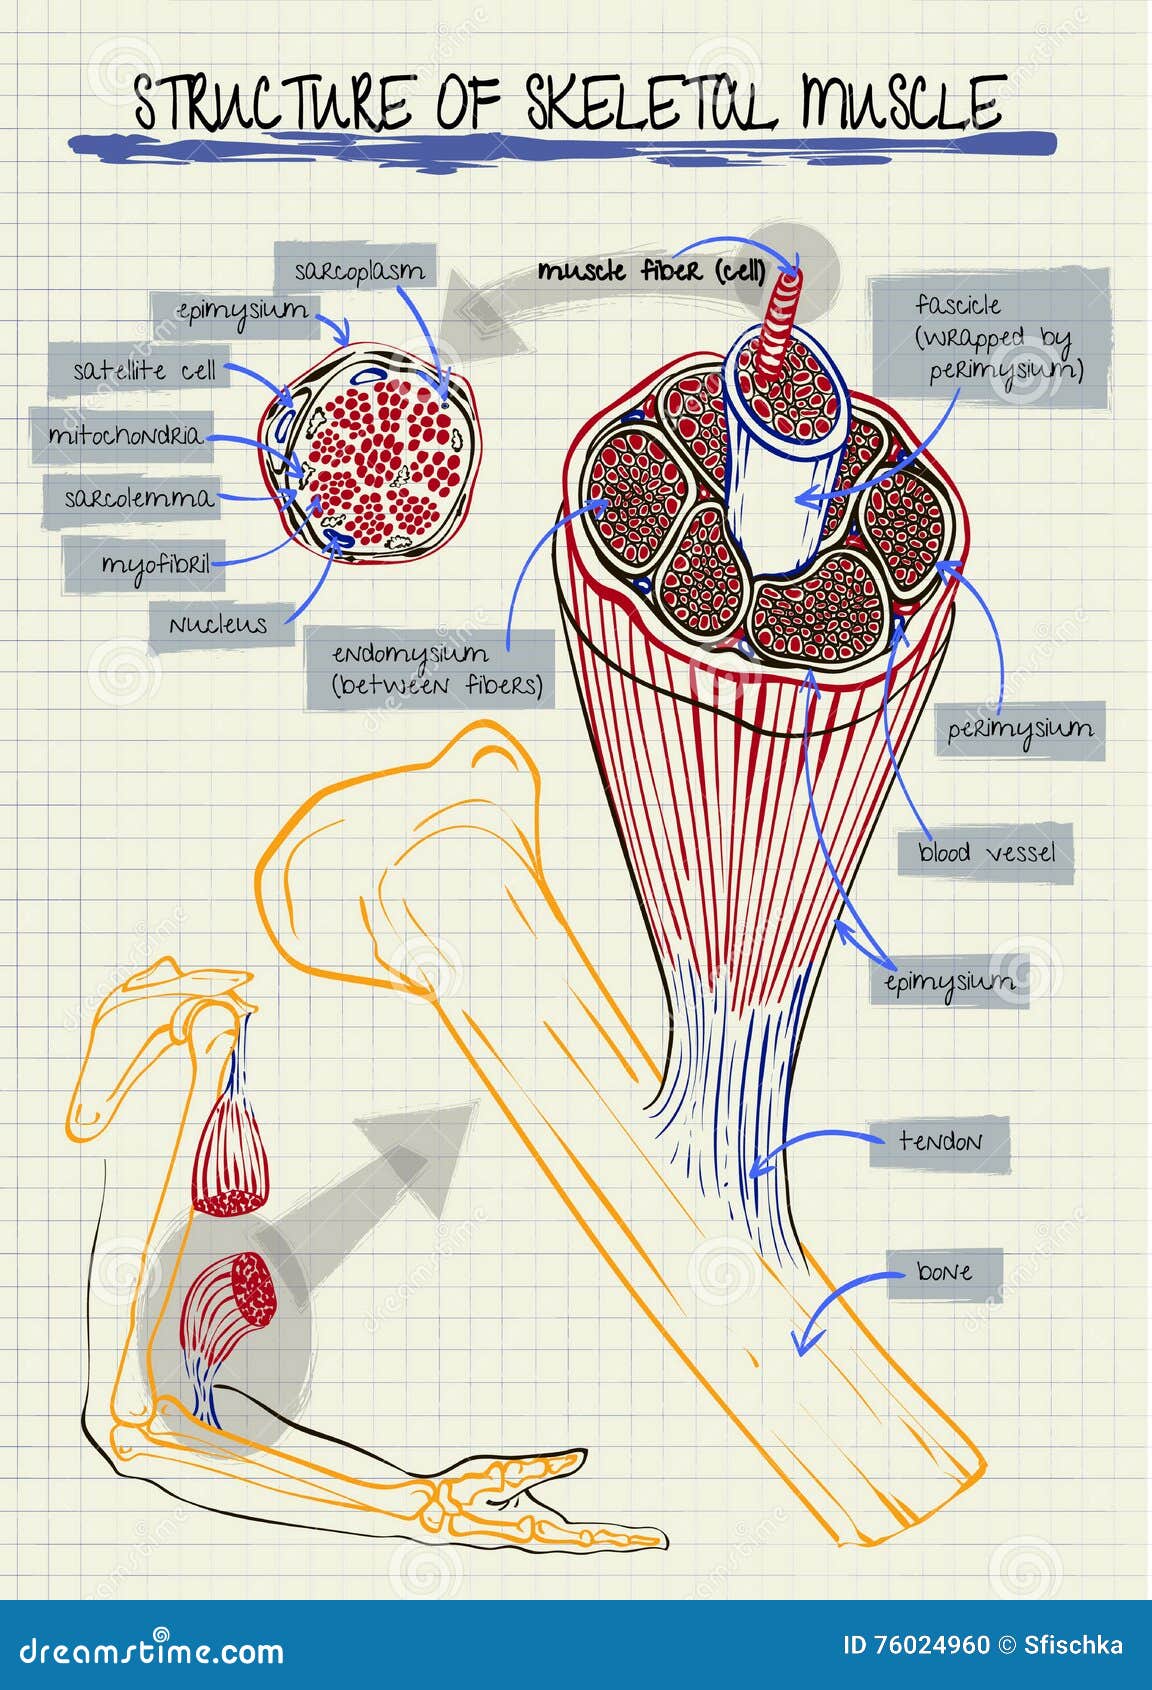 STRUCTURE OF SKELETAL MUSCLE
sarcoplasm
muscle fiber (cell)
epimysium
fascicle
(wrapped by
perimysium)
satellite cell
mitochondria
sarcolemma
myofibril
nucleus
endomysium
(between fibers)
perimysium
blood vessel
epimysium
tendon
bone
dreamstime.com
ID 76024960 © Sfischka